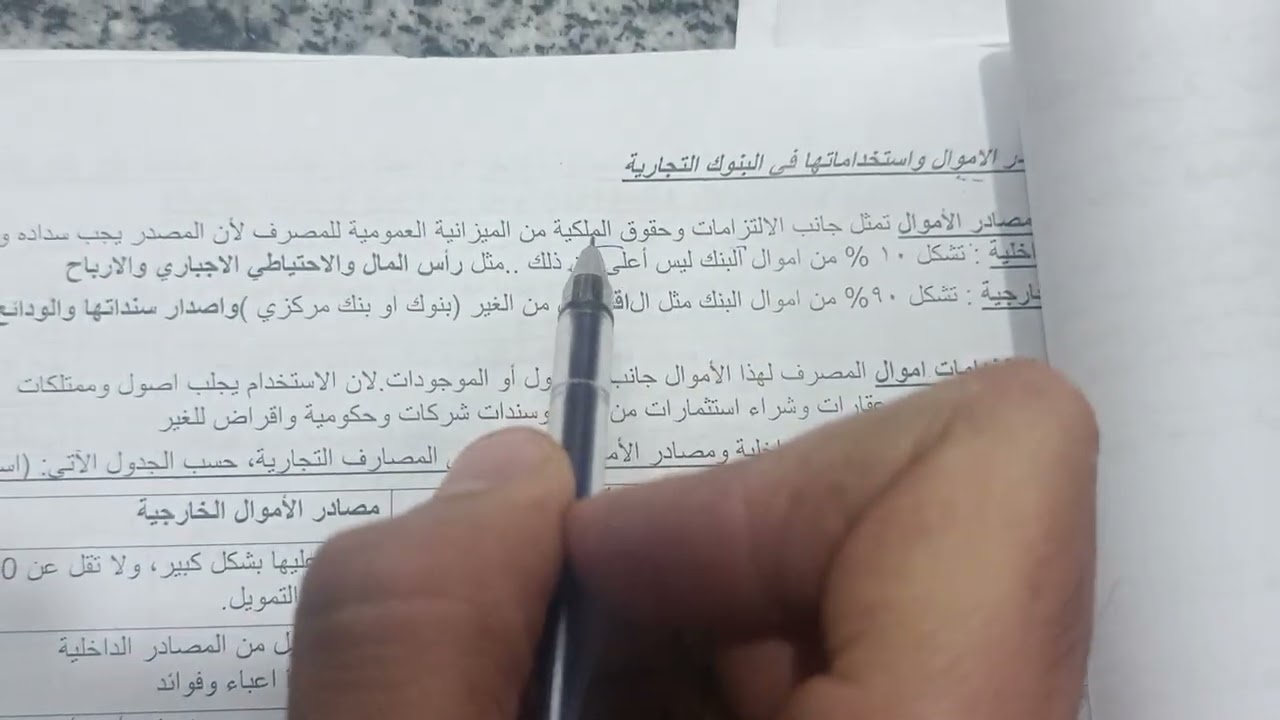 الاموال واستخداماتها في البنوك التجارية
مصادر الأموال تمثل جانب الالتزامات وحقوق الملكية من الميزانية العمومية للمصرف لأن المصدر يجب سداده و
: تشكل ١٠ % من اموال البنك ليس أعلى ذلك ..مثل رأس المال والاحتياطي الاجباري والارباح
: تشكل ٩٠% من اموال البنك مثل من الغير (بنوك او بنك مركزي )واصدار سنداتها والودائع
اموال المصرف لهذا الأموال جانب أو الموجودات.لان الاستخدام يجلب اصول وممتلكات
وشراء استثمارات من وسندات شركات وحكومية واقراض للغير
ومصادر المصارف التجارية، حسب الجدول الآتي:
مصادر الأموال الخارجية
بشكل كبير، ولا تقل عن
التمويل.
من المصادر الداخلية
اعباء وفوائد